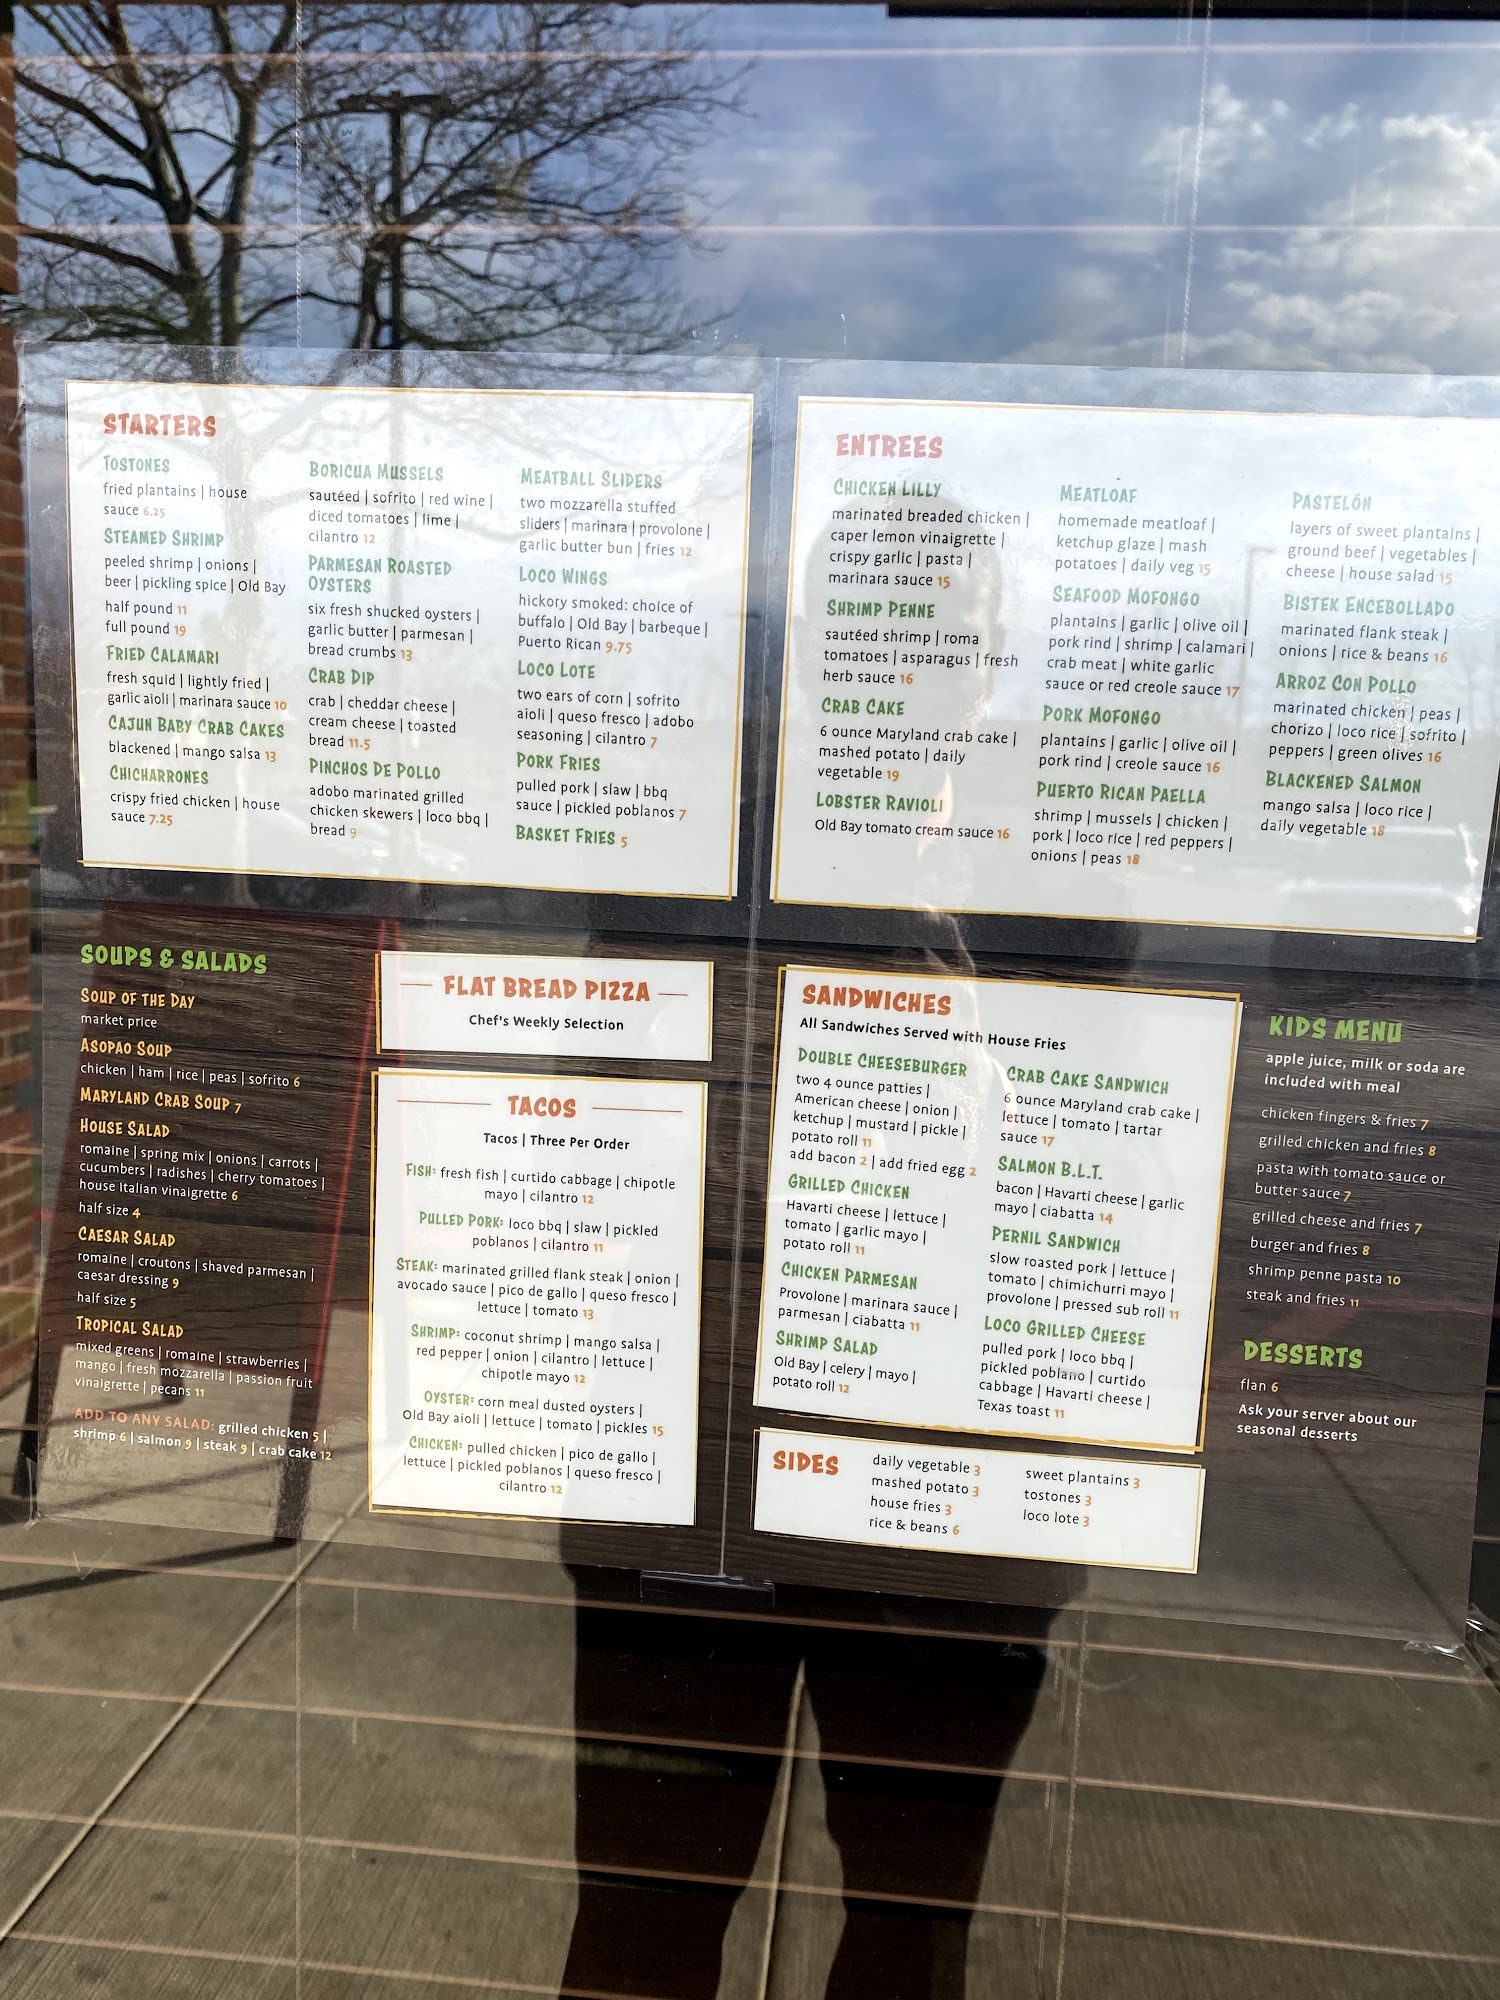 STARTERS
TOSTONES
fried plantains | house
sauce 6.25
STEAMED SHRIMP
peeled shrimp | onions |
beer | pickling spice | Old Bay
half pound 11
full pound 19
FRIED CALAMARI
fresh squid | lightly fried |
garlic aioli | marinara sauce 10
CAJUN BABY CRAB CAKES
blackened | mango salsa 13
CHICHARRONES
crispy fried chicken | house
sauce 7.25
BORICUA MUSSELS
sautéed | sofrito | red wine |
diced tomatoes | lime |
cilantro 12
PARMESAN ROASTED
OYSTERS
six fresh shucked oysters |
garlic butter | parmesan |
bread crumbs 13
CRAB DIP
crab | cheddar cheese |
cream cheese | toasted
bread 11.5
PINCHOS DE POLLO
adobo marinated grilled
chicken skewers | loco bbq |
bread 9
MEATBALL SLIDERS
two mozzarella stuffed
sliders | marinara | provolone |
garlic butter bun | fries 12
LOCO WINGS
hickory smoked: choice of
buffalo | Old Bay | barbeque |
Puerto Rican 9.75
LOCO LOTE
two ears of corn | sofrito
aioli | queso fresco | adobo
seasoning | cilantro 7
PORK FRIES
pulled pork | slaw | bbq
sauce | pickled poblanos 7
BASKET FRIES 5
ENTREES
CHICKEN LILLY
marinated breaded chicken |
caper lemon vinaigrette |
crispy garlic | pasta |
marinara sauce 15
SHRIMP PENNE
sautéed shrimp | roma
tomatoes | asparagus | fresh
herb sauce 16
CRAB CAKE
6 ounce Maryland crab cake |
mashed potato | daily
vegetable 19
LOBSTER RAVIOLI
Old Bay tomato cream sauce 16
MEATLOAF
homemade meatloaf |
ketchup glaze | mash
potatoes | daily veg 15
SEAFOOD MOFONGO
plantains | garlic | olive oil |
pork rind | shrimp | calamari |
crab meat | white garlic
sauce or red creole sauce 17
PORK MOFONGO
plantains | garlic | olive oil |
pork rind | creole sauce 16
PUERTO RICAN PAELLA
shrimp | mussels | chicken |
pork | loco rice | red peppers |
onions | peas 18
PASTELÓN
layers of sweet plantains |
ground beef | vegetables |
cheese | house salad 15
BISTEK ENCEBOLLADO
marinated flank steak |
onions | rice & beans 16
ARROZ CON POLLO
marinated chicken | peas |
chorizo | loco rice | sofrito |
peppers | green olives 16
BLACKENED SALMON
mango salsa | loco rice |
daily vegetable 18
SOUPS & SALADS
SOUP OF THE DAY
market price
ASOPAO SOUP
chicken | ham | rice | peas | sofrito 6
MARYLAND CRAB SOUP 7
HOUSE SALAD
romaine | spring mix | onions | carrots |
cucumbers | radishes | cherry tomatoes |
house Italian vinaigrette 6
half size 4
CAESAR SALAD
romaine | croutons | shaved parmesan |
caesar dressing 9
half size 5
TROPICAL SALAD
mixed greens | romaine | strawberries |
mango | fresh mozzarella | passion fruit
vinaigrette | pecans 11
ADD TO ANY SALAD: grilled chicken 5 |
shrimp 6 | salmon 9 | steak 9 | crab cake 12
FLAT BREAD PIZZA
Chef's Weekly Selection
TACOS
Tacos | Three Per Order
FISH: fresh fish | curtido cabbage | chipotle
mayo | cilantro 12
PULLED PORK: loco bbq | slaw | pickled
poblanos | cilantro 11
STEAK: marinated grilled flank steak | onion |
avocado sauce | pico de gallo | queso fresco |
lettuce | tomato 13
SHRIMP: coconut shrimp | mango salsa |
red pepper | onion | cilantro | lettuce |
chipotle mayo 12
OYSTER: corn meal dusted oysters |
Old Bay aioli | lettuce | tomato | pickles 15
CHICKEN: pulled chicken | pico de gallo |
lettuce | pickled poblanos | queso fresco |
cilantro 12
SANDWICHES
All Sandwiches Served with House Fries
DOUBLE CHEESEBURGER
two 4 ounce patties |
American cheese | onion |
ketchup | mustard | pickle |
potato roll 11
add bacon 2 | add fried egg 2
GRILLED CHICKEN
Havarti cheese | lettuce |
tomato | garlic mayo |
potato roll 11
CHICKEN PARMESAN
Provolone | marinara sauce |
parmesan | ciabatta 11
SHRIMP SALAD
Old Bay | celery | mayo |
potato roll 12
CRAB CAKE SANDWICH
6 ounce Maryland crab cake |
lettuce | tomato | tartar
sauce 17
SALMON B.L.T.
bacon | Havarti cheese | garlic
mayo | ciabatta 14
PERNIL SANDWICH
slow roasted pork | lettuce |
tomato | chimichurri mayo |
provolone | pressed sub roll 11
LOCO GRILLED CHEESE
pulled pork | loco bbq |
pickled poblano | curtido
cabbage | Havarti cheese |
Texas toast 11
SIDES
daily vegetable 3
mashed potato 3
house fries 3
rice & beans 6
sweet plantains 3
tostones 3
loco lote 3
KIDS MENU
apple juice, milk or soda are
included with meal
chicken fingers & fries 7
grilled chicken and fries 8
pasta with tomato sauce or
butter sauce 7
grilled cheese and fries 7
burger and fries 8
shrimp penne pasta 10
steak and fries 11
DESSERTS
flan 6
Ask your server about our
seasonal desserts